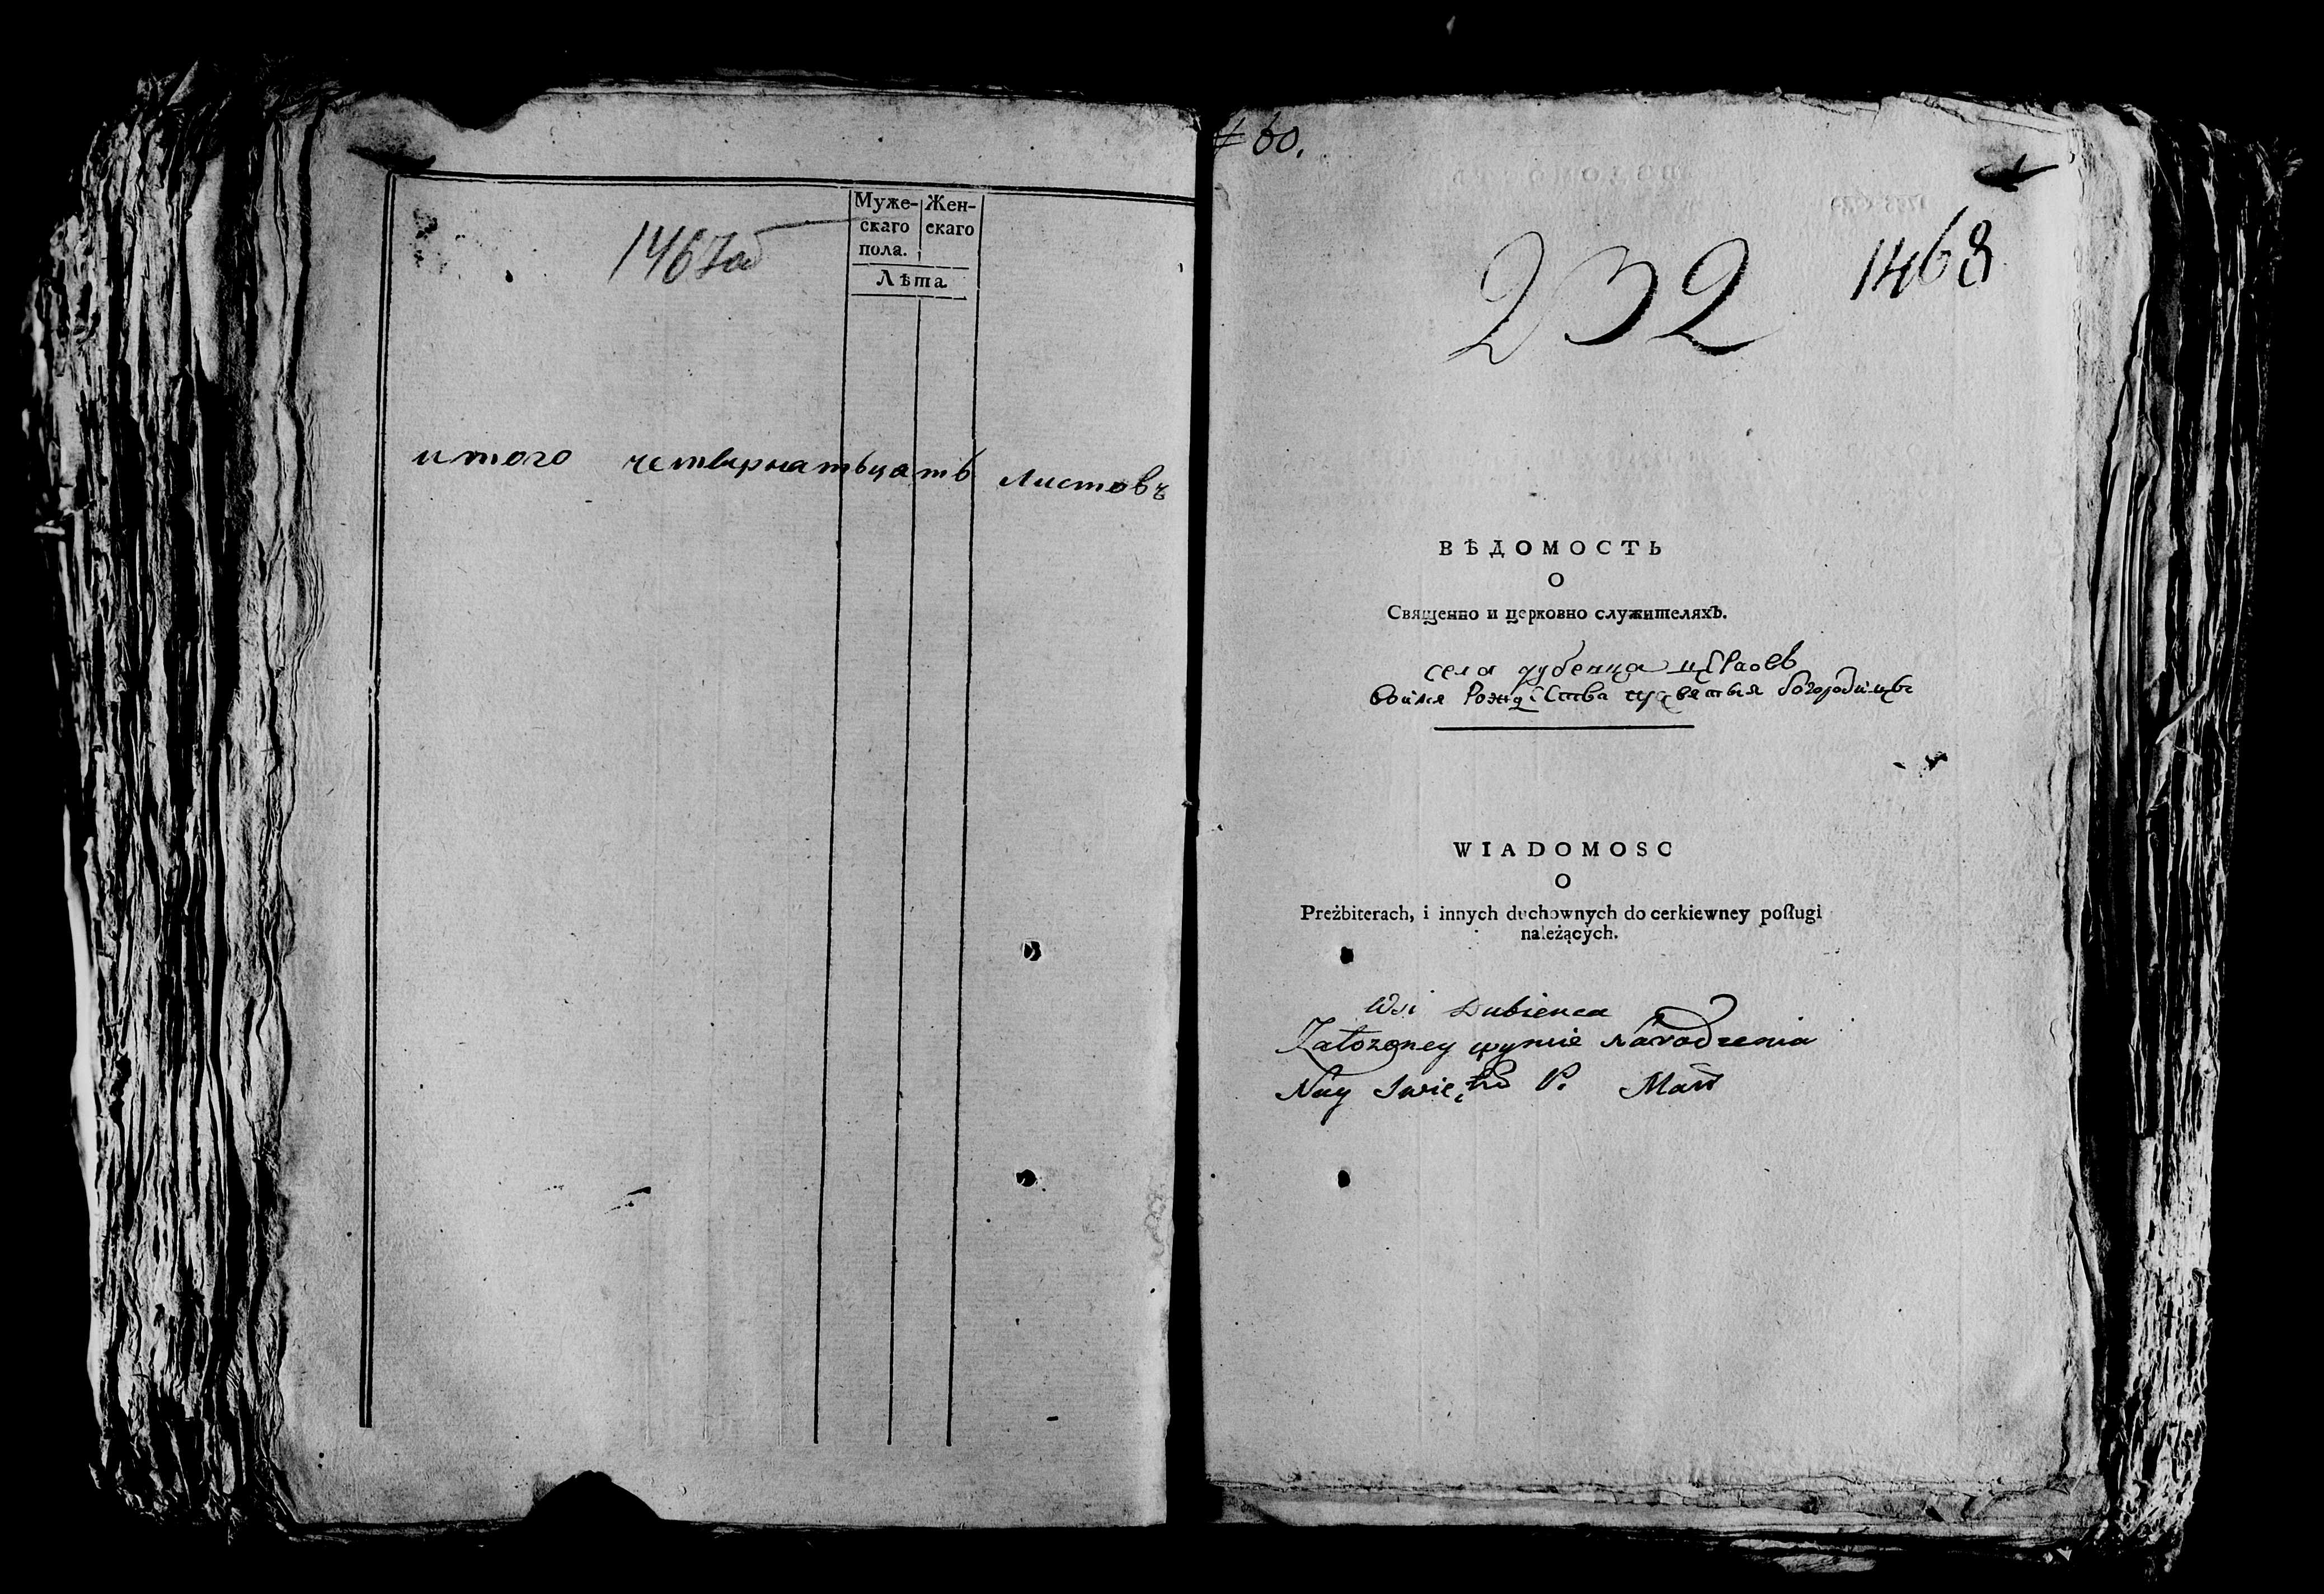 Муже- Жен-
скаго скаго
пола.
Лѣта
1467об
итого четвернатьцать листовъ
60.
232 1468
ВѢДОМОСТЬ
О
Священно и церковно служителяхъ.
села дубенца
воимя Рождества пресветыя богородицы
WIADOMOSC
O
Preżbiterach, i innych duchownych do cerkiewney posługi
należących.
Wsi Dubienca
Załozoney wymie Narodzenia
Nay Swie P. Mari